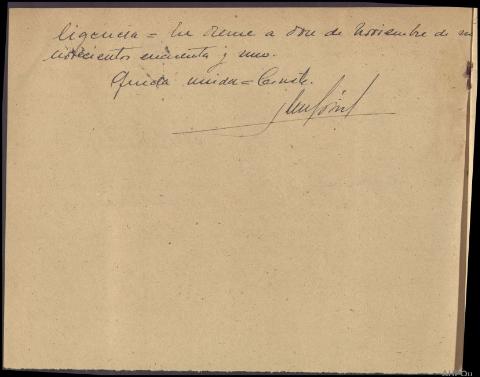 ligencia = En Orense a doce de Noviembre de mil
novecientos cincuenta y uno.
Queda unida = Conste.